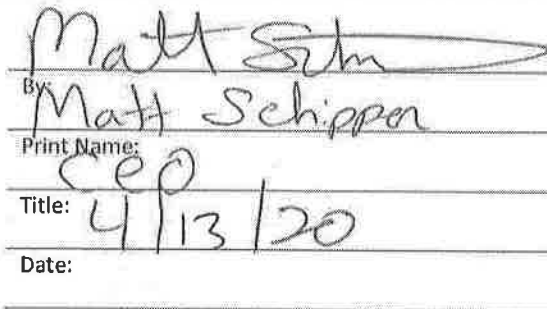 Matt
By:
Matt Schipper
Print Name:
CEO
Title:
4/13/20
Date: